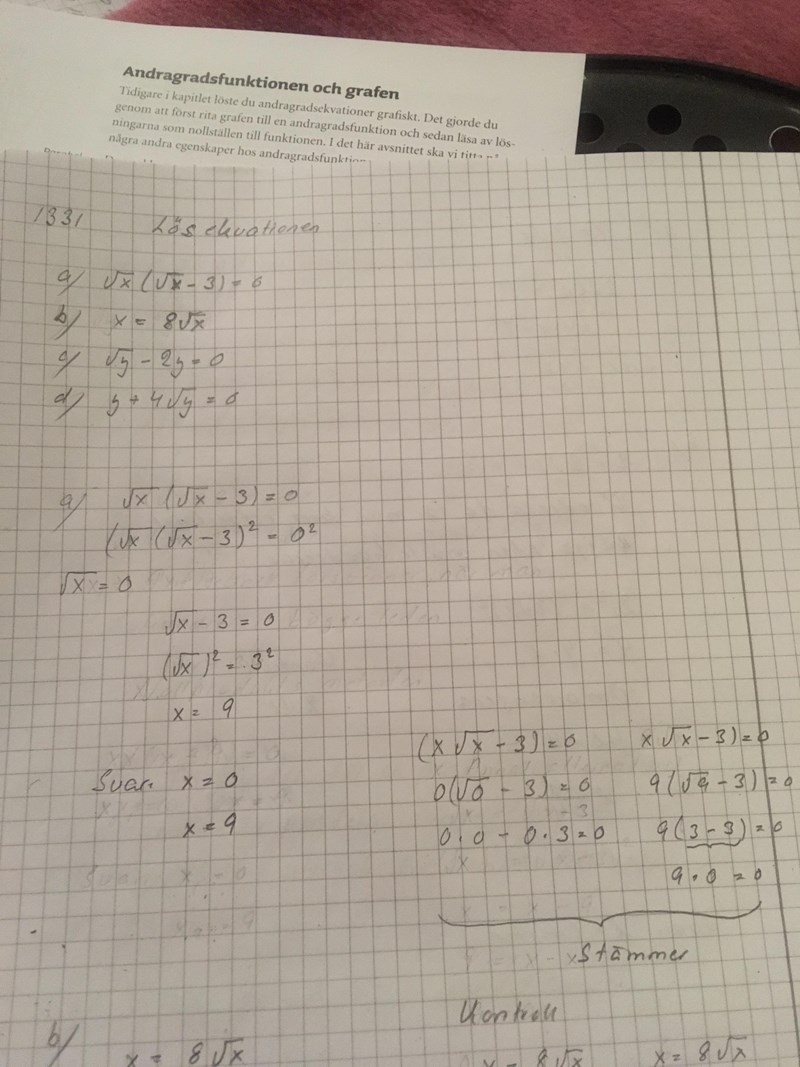 Andragradsfunktionen och grafen
Tidigare i kapitlet löste du andragradsekvationer grafiskt. Det gjorde du
genom att först rita grafen till en andragradsfunktion och sedan läsa av lös-
ningarna som nollställen till funktionen. I det här avsnittet ska vi titta på
några andra egenskaper hos andragradsfunktion
1331 Lös ekvationen
a) √x (√x - 3) = 0
b) x = 8√x
c) √y - 2y = 0
d) y + 4√y = 0
a) √x (√x - 3) = 0
(√x (√x - 3)² = 0²
√x = 0
√x - 3 = 0
(√x)² = 3²
x = 9
Svar. x = 0
x = 9
(x √x - 3) = 0
0(√0 - 3) = 0
0 · 0 - 0 · 3 = 0
x √x - 3) = 0
9(√9 - 3) = 0
9(3 - 3) = 0
9 · 0 = 0
Stämmer
b) x = 8√x
Kontroll
x = 8√x
x = 8√x